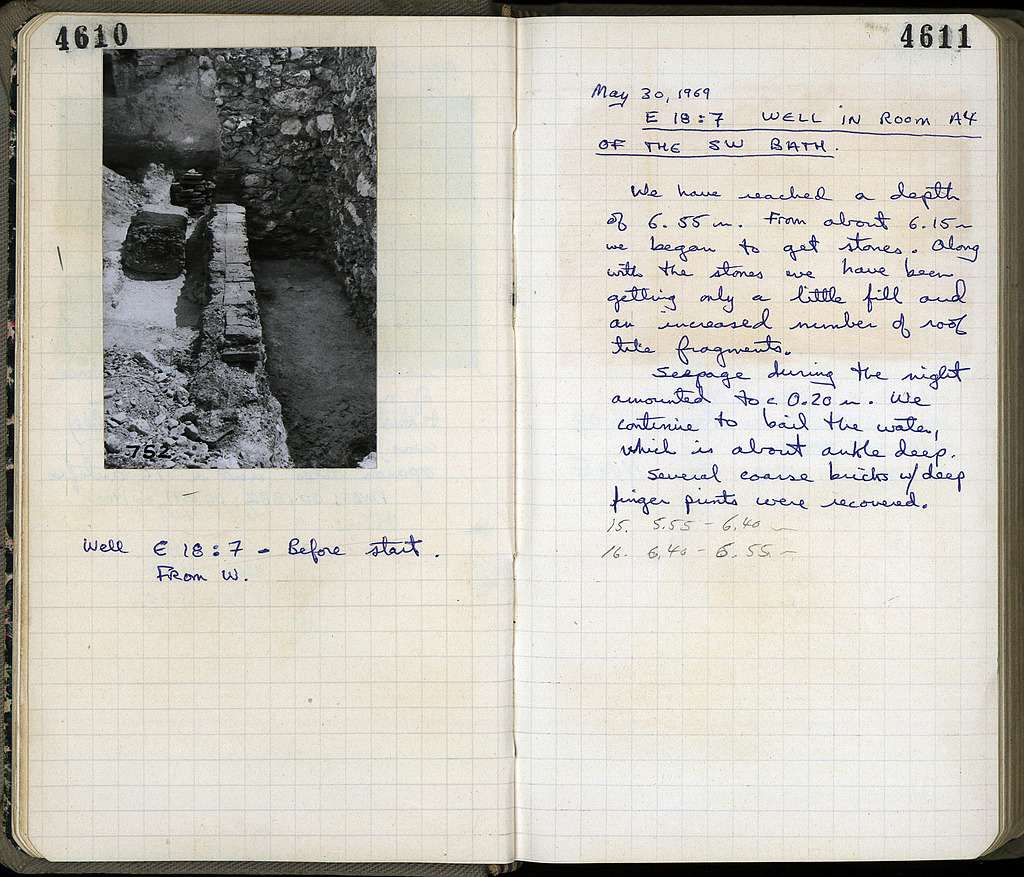 4610
752
Well E 18:7 - Before start.
From W.
4611
May 30, 1969
E 18:7 WELL IN ROOM A4
OF THE SW BATH.
We have reached a depth
of 6.55 m. From about 6.15 m
we began to get stones. Along
with the stones we have been
getting only a little fill and
an increased number of roof
tile fragments.
Seepage during the night
amounted to c 0.20 m. We
continue to bail the water,
which is about ankle deep.
Several coarse bricks w/ deep
finger prints were recovered.
15. 5.55 - 6.40 m
16. 6.40 - 6.55 m